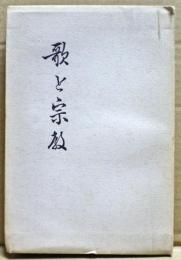 歌と宗教